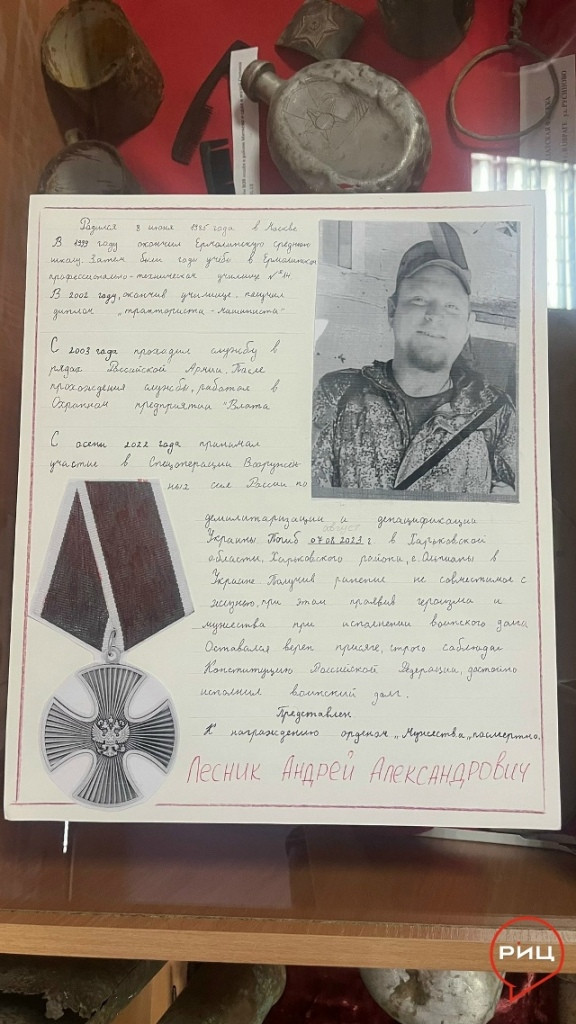 Родился 8 июня 1985 года в Москве
В 1999 году окончил Ермолинскую среднюю
школу. Затем были годы учёбы в Ермолинском
профессионально-техническом училище №14
В 2002 году, окончив училище получил
диплом „тракториста-машиниста"
С 2003 года проходил службу в
рядах Российской Армии. После
прохождения службы, работал в
Охранном предприятии "Влата
С осени 2022 года принимал
участие в Спецоперации Вооружён
ных сил России по
демилитаризации и денацификации
август
Украины Погиб 07.08.2023 г. в Харьковской
области, Харьковского района, с. Ольшаны в
Украине Получив ранение не совместимое с
жизнью, при этом проявив героизма и
мужества при исполнении воинского долга
Оставался верен присяге, строго соблюдал
Конституцию Российской Федерации, достойно
исполнил воинский долг.
Представлен
К награждению орденом „Мужества„ посмертно.
Лесник Андрей Александрович
РИЦ